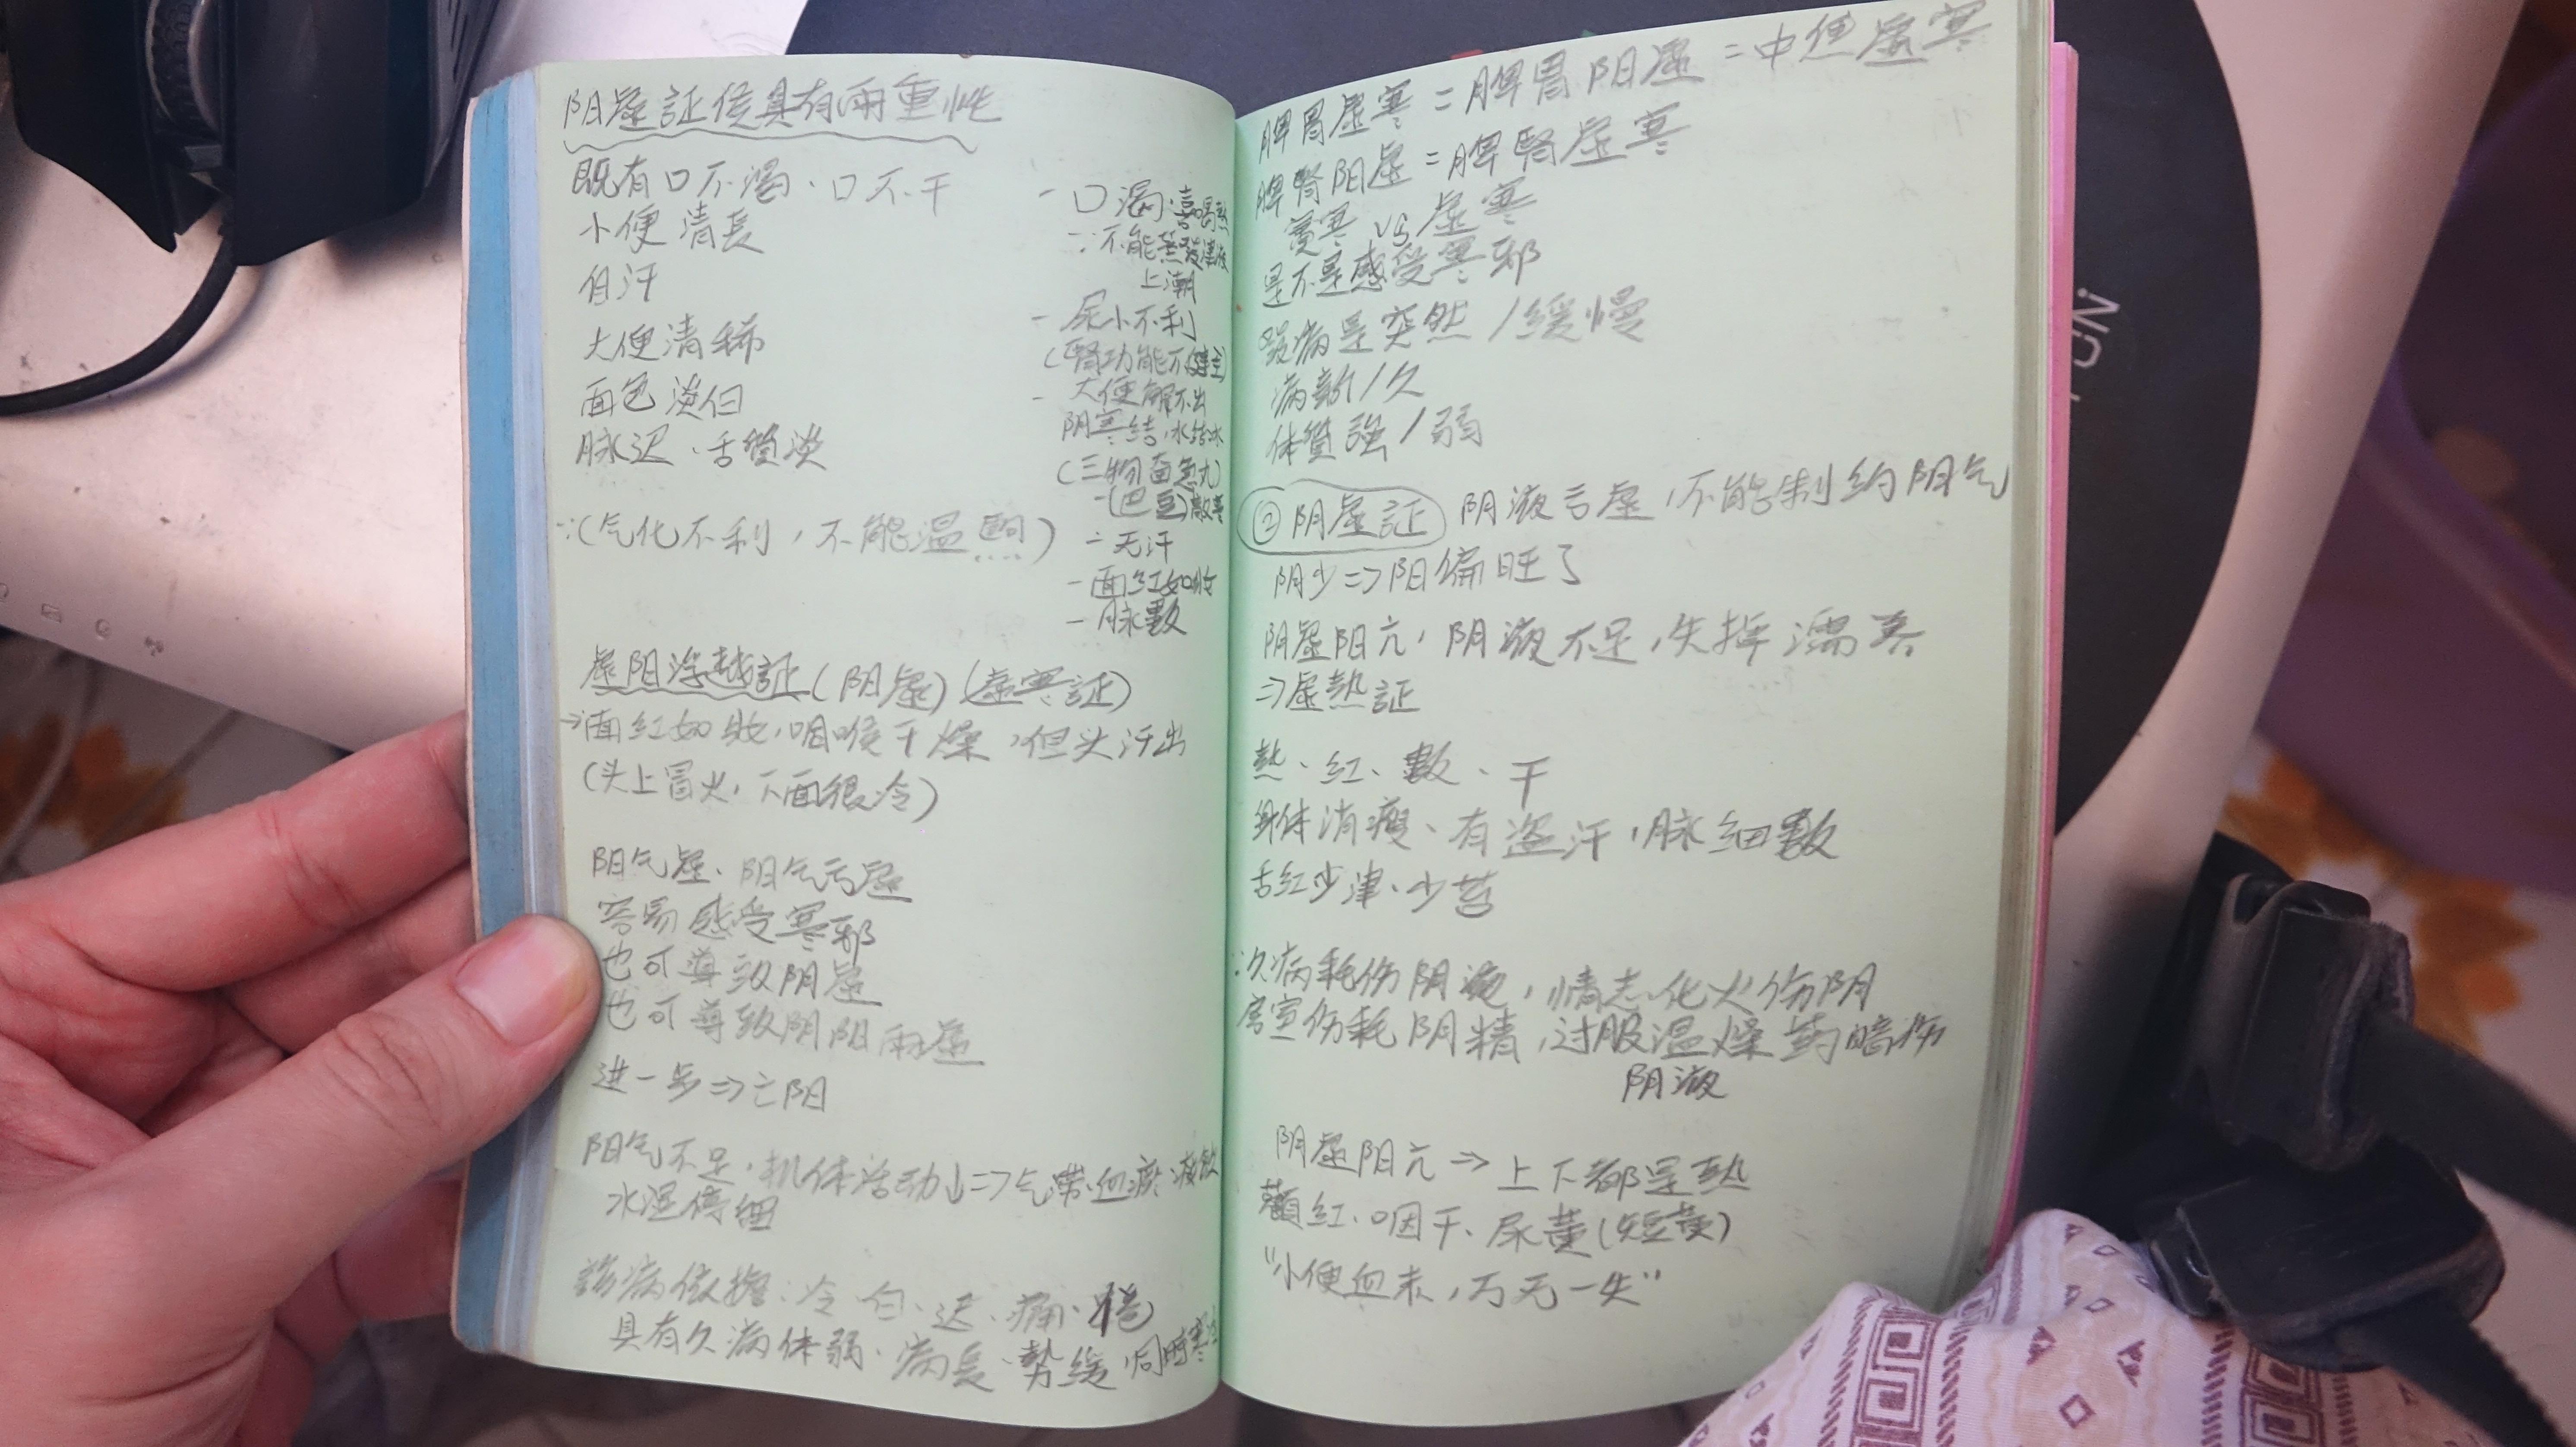 阳虚証候具有兩重性
既有口不渴、口不干
小便清長
自汗
大便清稀
面色淡白
脉迟、舌質淡
∵(气化不利，不能温煦)
- 口渴、喜喝熱
∵不能蒸發津液
上潮
- 尿小不利
(腎功能不健全)
- 大便解不出
阴寒结，水结冰
(三物备急丸)
-(巴豆)散寒
- 无汗
- 面红如妆
- 脉數
虚阳浮越証(阳虚)(虚寒証)
→面红如妝，咽喉干燥，但头汗出
(头上冒火，下面很冷)
阳气虚、阳气亏虚
容易感受寒邪
也可導致阴虚
也可導致阴阳兩虚
进一步⇒亡阳
阳气不足，机体活动↓⇒气滯、血瘀、痰飲
水湿停
病依據：冷、白、迟、痛、踡
具有久病体弱、病長、勢缓，同時寒
脾胃虚寒=脾胃阳虚=中焦虚寒
脾腎阳虚=脾腎虚寒
實寒 vs 虚寒
是不是感受寒邪
發病是突然/緩慢
病新/久
体質強/弱
②阴虚証 阴液亏虚，不能制约阳气
阴少⇒阳偏旺了
阴虚阳亢，阴液不足，失掉濡养
⇒虚熱証
熱、红、數、干
身体消瘦、有盗汗，脉细數
舌红少津、少苔
∵久病耗伤阴液，情志化火伤阴
房室伤耗阴精，过服温燥药暗伤
阴液
阴虚阳亢→上下都是熱
顴红、咽干、尿黄(短黄)
"小便血未，万无一失"
NUC